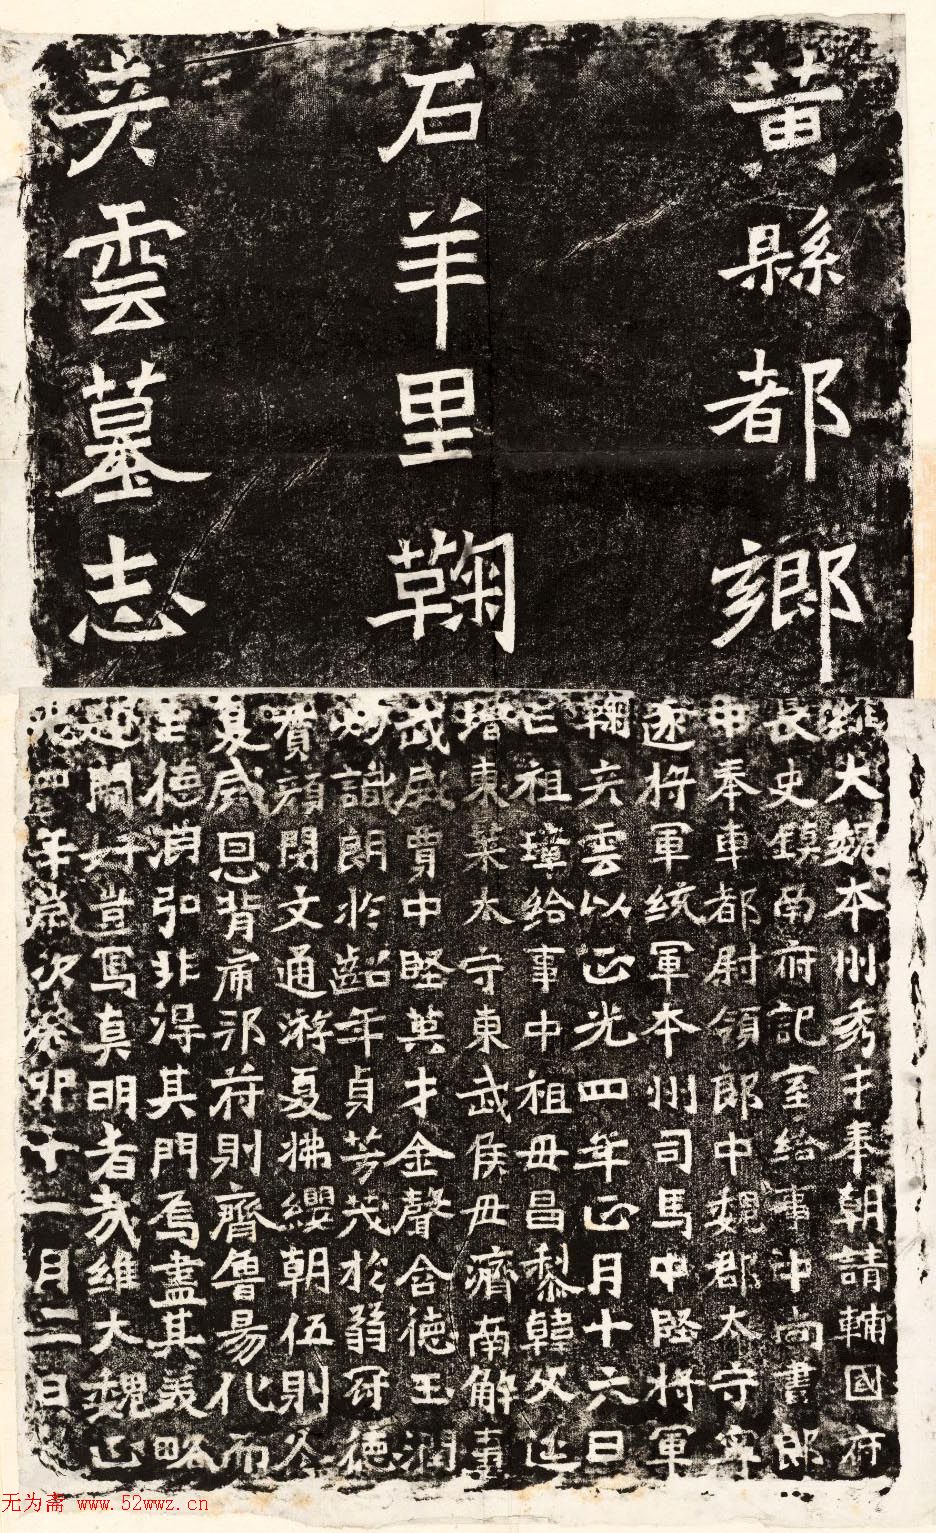 黃縣都鄉
石羊里鞠
彥雲墓志
維大魏本州秀才奉朝請輔國府
長史鎮南府記室給事中尚書郎
中奉車都尉領郎中魏郡太守寧
遠將軍統軍本州司馬中堅將軍
鞠彥雲以正光四年正月十六日
亡祖璋給事中祖母昌黎韓父延
增東萊太守東武侯母濟南解妻
武威賈中堅英才金聲含德玉潤
妙識朗於齠年貞芳茂於弱冠德
賓顏閔文通游夏拂纓朝伍則
夏威恩背屌邪苻則齊魯易化而
至德潤弘非得其門焉盡其美略
題聞好豈寫真明者哉維大魏正
光四年歲次癸卯十一月二日
无为斋 www.52wwz.cn